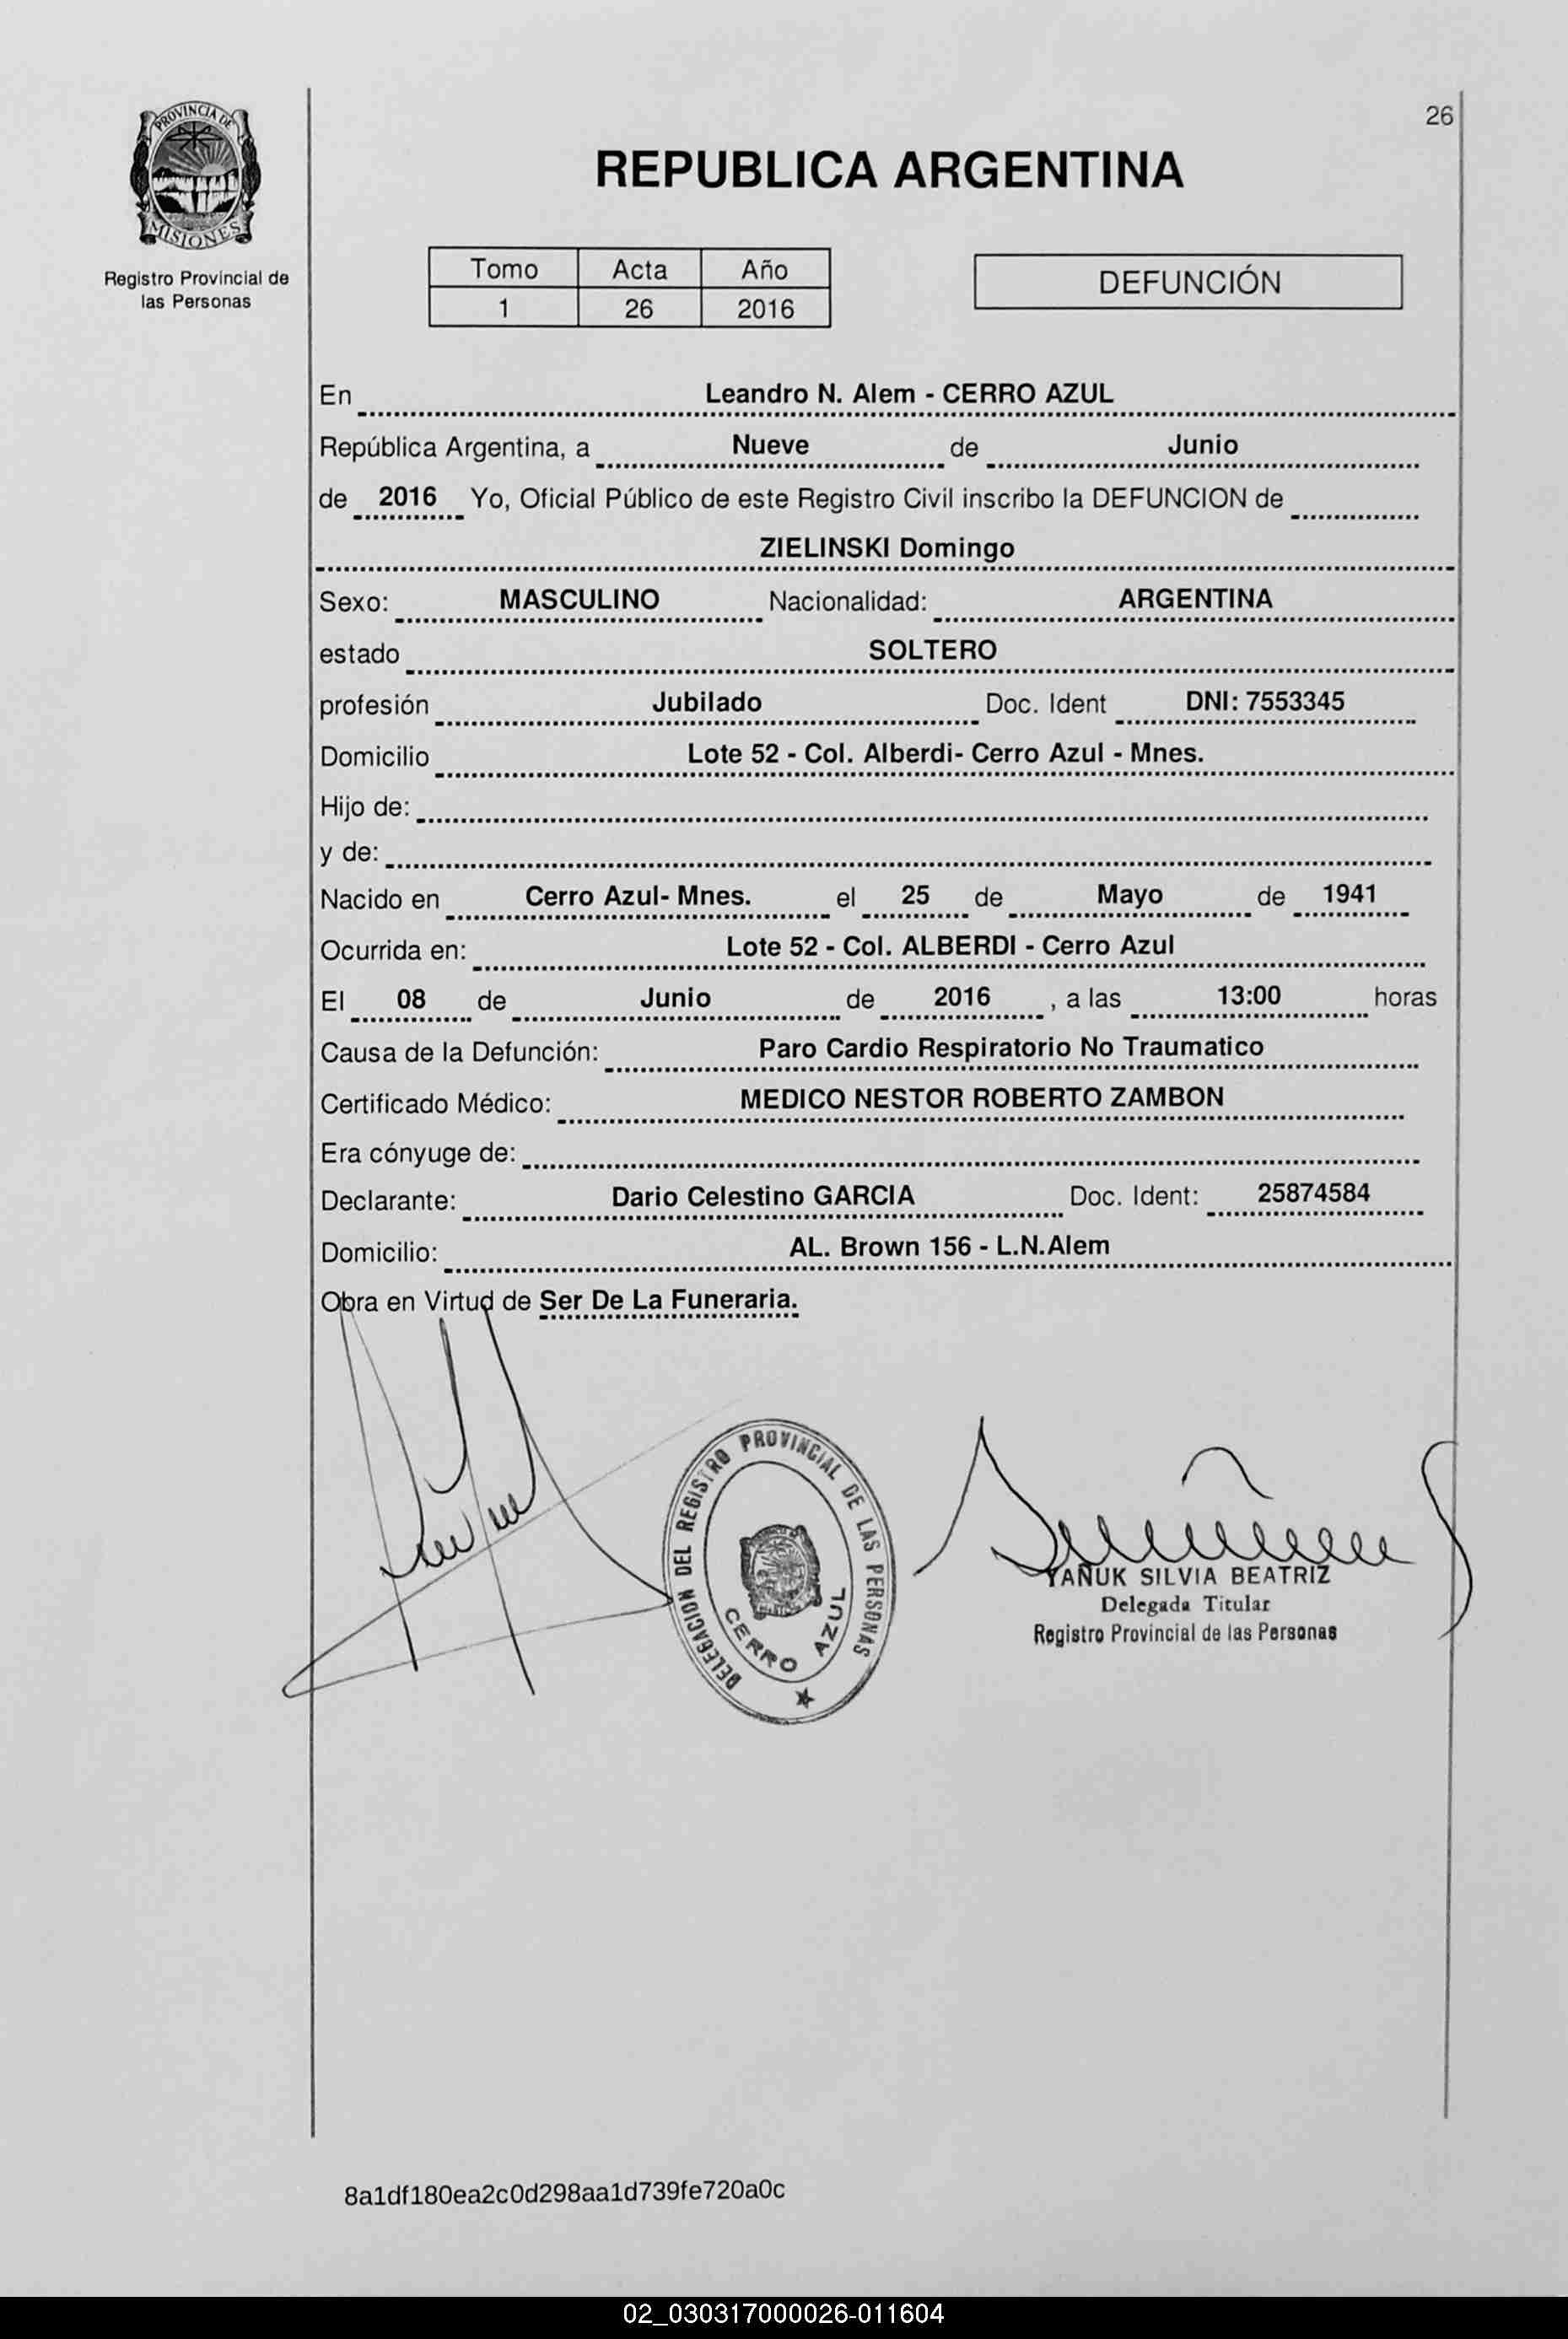 26
PROVINCIA DE
MISIONES
Registro Provincial de
las Personas
REPUBLICA ARGENTINA
Tomo Acta Año
1 26 2016
DEFUNCIÓN
En Leandro N. Alem - CERRO AZUL
República Argentina, a Nueve de Junio
de 2016 Yo, Oficial Público de este Registro Civil inscribo la DEFUNCION de
ZIELINSKI Domingo
Sexo: MASCULINO Nacionalidad: ARGENTINA
estado SOLTERO
profesión Jubilado Doc. Ident DNI: 7553345
Domicilio Lote 52 - Col. Alberdi- Cerro Azul - Mnes.
Hijo de:
y de:
Nacido en Cerro Azul- Mnes. el 25 de Mayo de 1941
Ocurrida en: Lote 52 - Col. ALBERDI - Cerro Azul
El 08 de Junio de 2016 , a las 13:00 horas
Causa de la Defunción: Paro Cardio Respiratorio No Traumatico
Certificado Médico: MEDICO NESTOR ROBERTO ZAMBON
Era cónyuge de:
Declarante: Dario Celestino GARCIA Doc. Ident: 25874584
Domicilio: AL. Brown 156 - L.N.Alem
Obra en Virtud de Ser De La Funeraria.
DELEGACION DEL REGISTRO PROVINCIAL DE LAS PERSONAS
CERRO AZUL
YAÑUK SILVIA BEATRIZ
Delegada Titular
Registro Provincial de las Personas
8a1df180ea2c0d298aa1d739fe720a0c
02_030317000026-011604